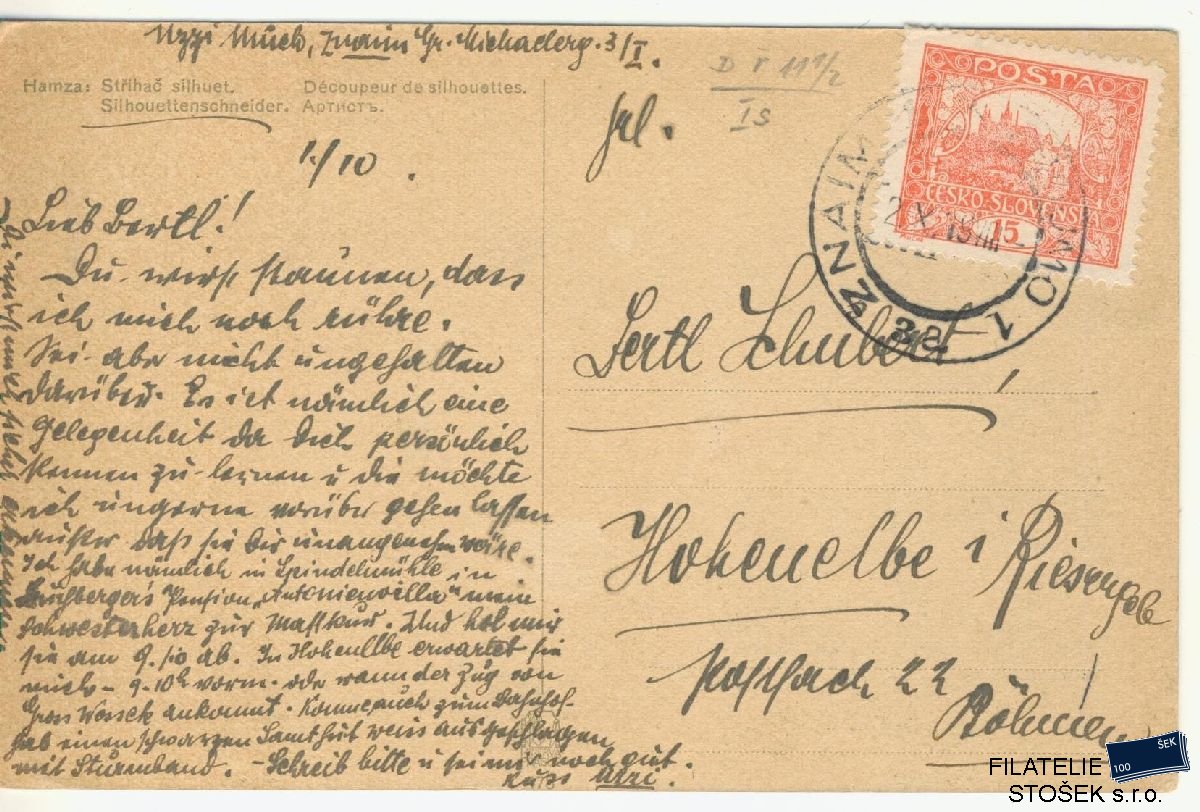 Uzzi Much, Znaim Gr. Michaelerg. 3/I.
Hamza: Střihač silhuet. Découpeur de silhouettes.
Silhouettenschneider. Артистъ.
D F 11 1/2
IS
1./10.
Lieb Bertl!
Du wirst staunen, dass
ich mich noch rühre.
Sei aber nicht ungehalten
darüber. Es ist nämlich eine
Gelegenheit da Dich persönlich
kennen zu lernen u die möchte
ich ungerne vorüber gehen lassen
außer daß sie Dir unangenehm wäre.
Ich habe nämlich in Spindelmühle in
Buchberger's Pension „Antonienvilla" mein
Schwesterherz zur Mastkur. Und hol mir
sie am 9./10 ab. In Hohenelbe erwartet sie
mich - 9-10h vorm. oder wann der Zug von
Gross Wossek ankommt. Komme auch zum Bahnhof.
hab einen schwarzen Samthut weiss ausgeschlagen
mit Sturmband. - Schreib bitte u sei mir noch gut.
Kuss Uzzi.
Frl.
Bertl Schubert,
Hohenelbe i Riesengeb
Postfach 22
Böhmen
POSTA
ČESKO-SLOVENSKÁ
15
ZNAIM 1
2 X
3a
ŠEK
100
FILATELIE
STOŠEK s.r.o.